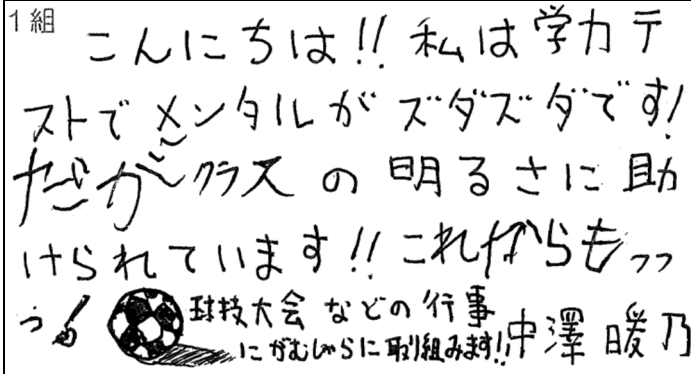 1組
こんにちは!! 私は学力テ
ストでメンタルがズダズダです!
だが クラスの明るさに助
けられています!! これからもっっ
っ
球技大会などの行事
にがむしゃらに取り組みます!!
中澤 暖乃